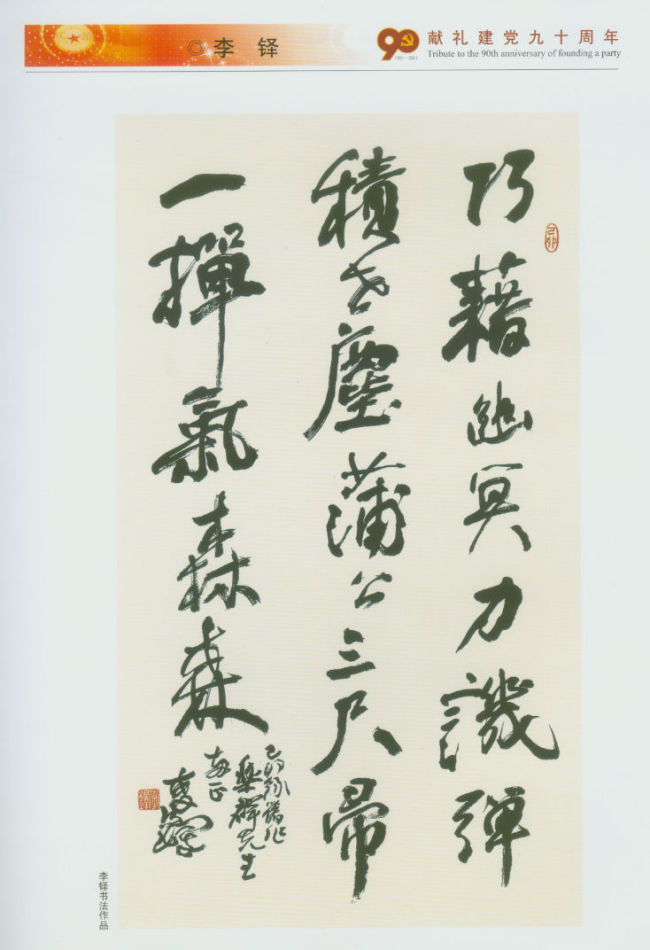 李铎
90
1921-2011
献礼建党九十周年
Tribute to the 90th anniversary of founding a party
己卯
巧藉幽冥力譏彈
積世塵蒲公三尺帚
一揮氣森森
己卯錄舊作
樂輝先生
李铎书法作品